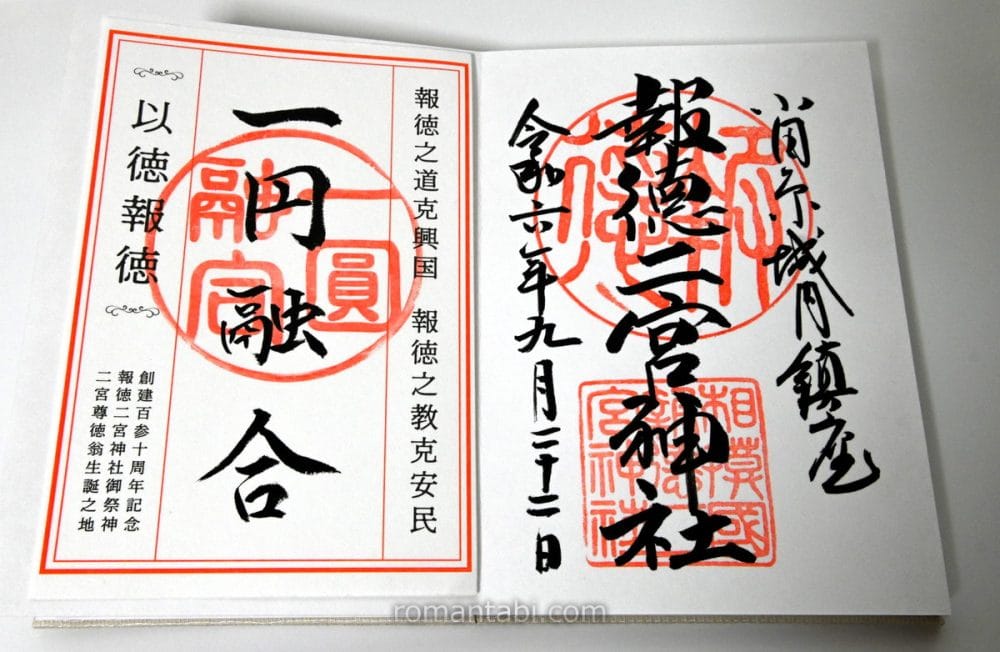 小田原城内鎮座
報徳二宮神社
令和六年九月二十二日
相模國
報徳二
宮神社
報徳之道克興国　報徳之教克安民
一円融合
一圓
融合
以徳報徳
創建百参十周年記念
報徳二宮神社御祭神
二宮尊徳翁生誕之地
romantabi.com